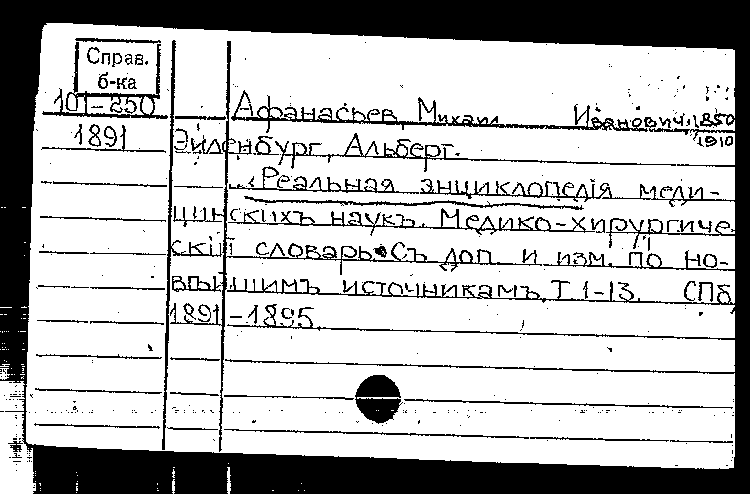 Справ.
б-ка
101-250
Афанасьев, Михаил Иванович, 1850
1891
1910
Эйленбург, Альберт.
... Реальная энциклопедія меди-
цинскихъ наукъ. Медико-хирургиче
скій словарь. Съ доп. и изм. по но-
вѣйшимъ источникамъ. Т. 1-13. СПб,
1891-1895.